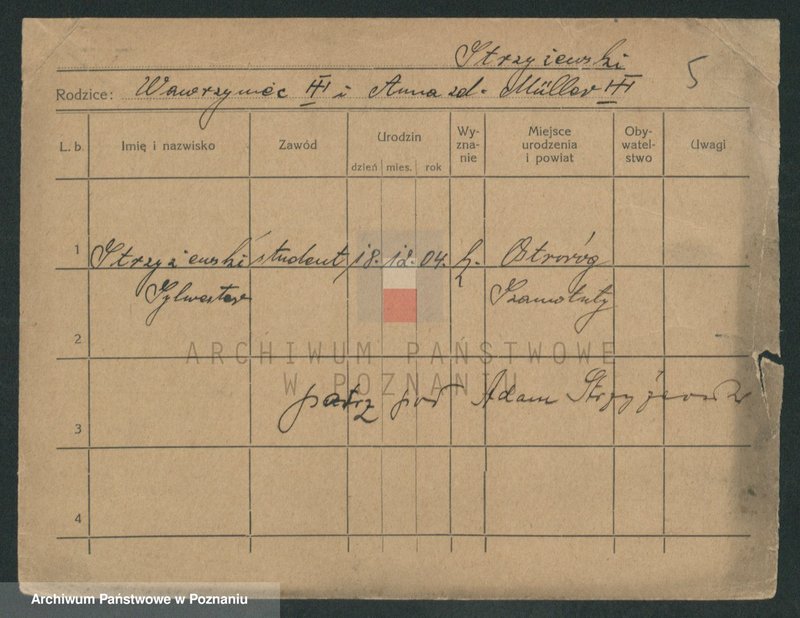 Strzyżewski
5
Rodzice: Wawrzyniec i Anna zd. Müller
L. b.
Imię i nazwisko
Zawód
Urodzin
dzień
mies.
rok
Wy-
zna-
nie
Miejsce
urodzenia
i powiat
Oby-
watel-
stwo
Uwagi
1
Strzyżewski student 18. 12. 04. Ostroróg
Sylwester Szamotuły
2
ARCHIWUM PAŃSTWOWE
W POZNANIU
patrz pod Adam Strzyżewski
3
4
Archiwum Państwowe w Poznaniu